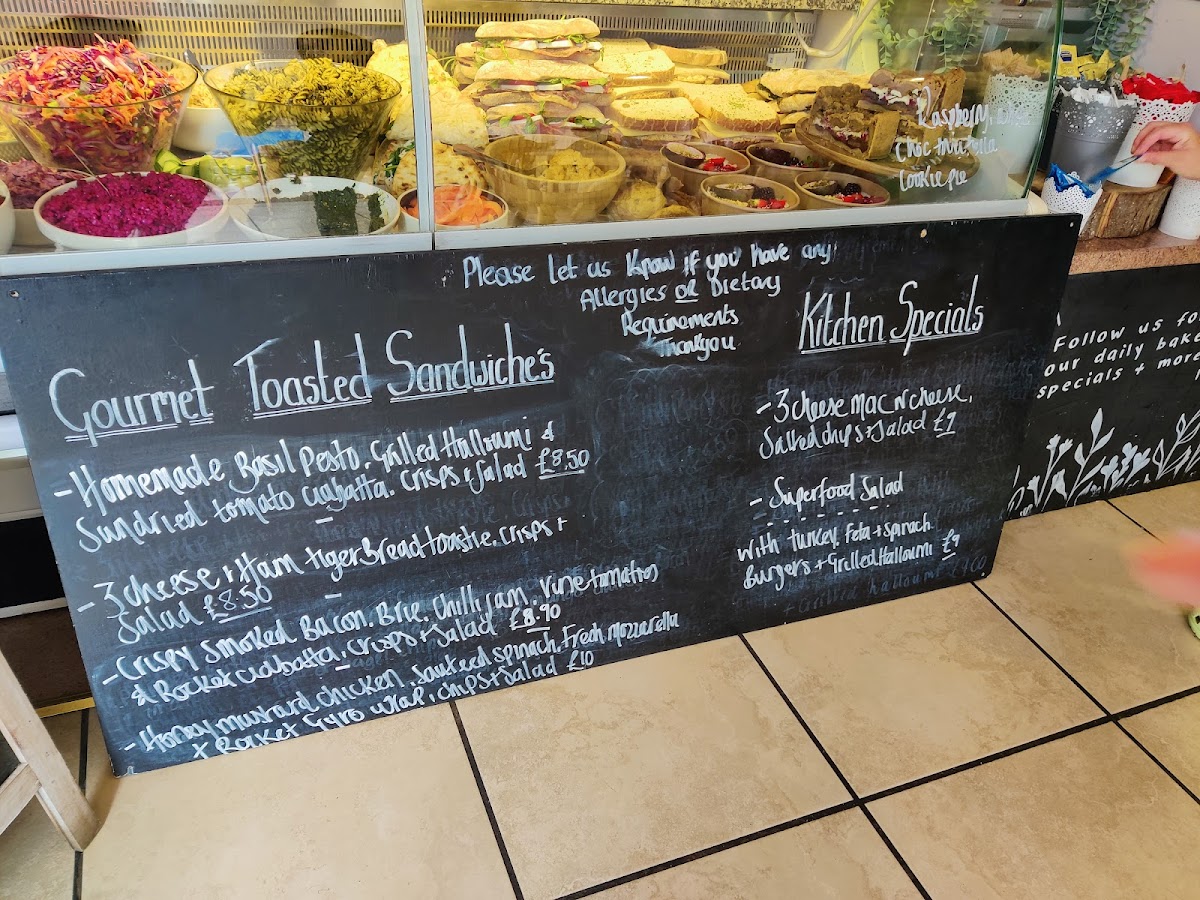 Raspberry, White
Choc Nutella
Cookie Pie
Please let us know if you have any
Allergies or Dietary
Requirements
Thankyou
Gourmet Toasted Sandwiche's
- Homemade Basil Pesto, Grilled Halloumi &
Sundried tomato ciabatta. Crisps + Salad £8.50
- 3 cheese + Ham tiger Bread toastie, crisps +
Salad £8.50
- Crispy Smoked Bacon, Brie, Chilli jam, Vine tomatoes
& Rocket ciabatta, crisps + Salad £8.90
- Honey mustard chicken, Sauteed spinach, Fresh Mozzarella
+ Rocket Gyro wrap, chips + Salad £10
Kitchen Specials
- 3 cheese Mac N cheese,
Salted chips + Salad £9
- Superfood Salad
with turkey, Feta + Spinach
Burgers + Grilled Halloumi £9
Follow us for
our daily bake
specials + more